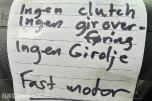 Ingen clutch
Ingen girover-
føring
Ingen Girolje
Fast motor